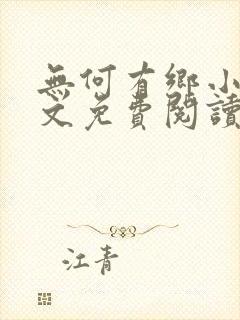 無何有鄉小
文免費閱讀
江青